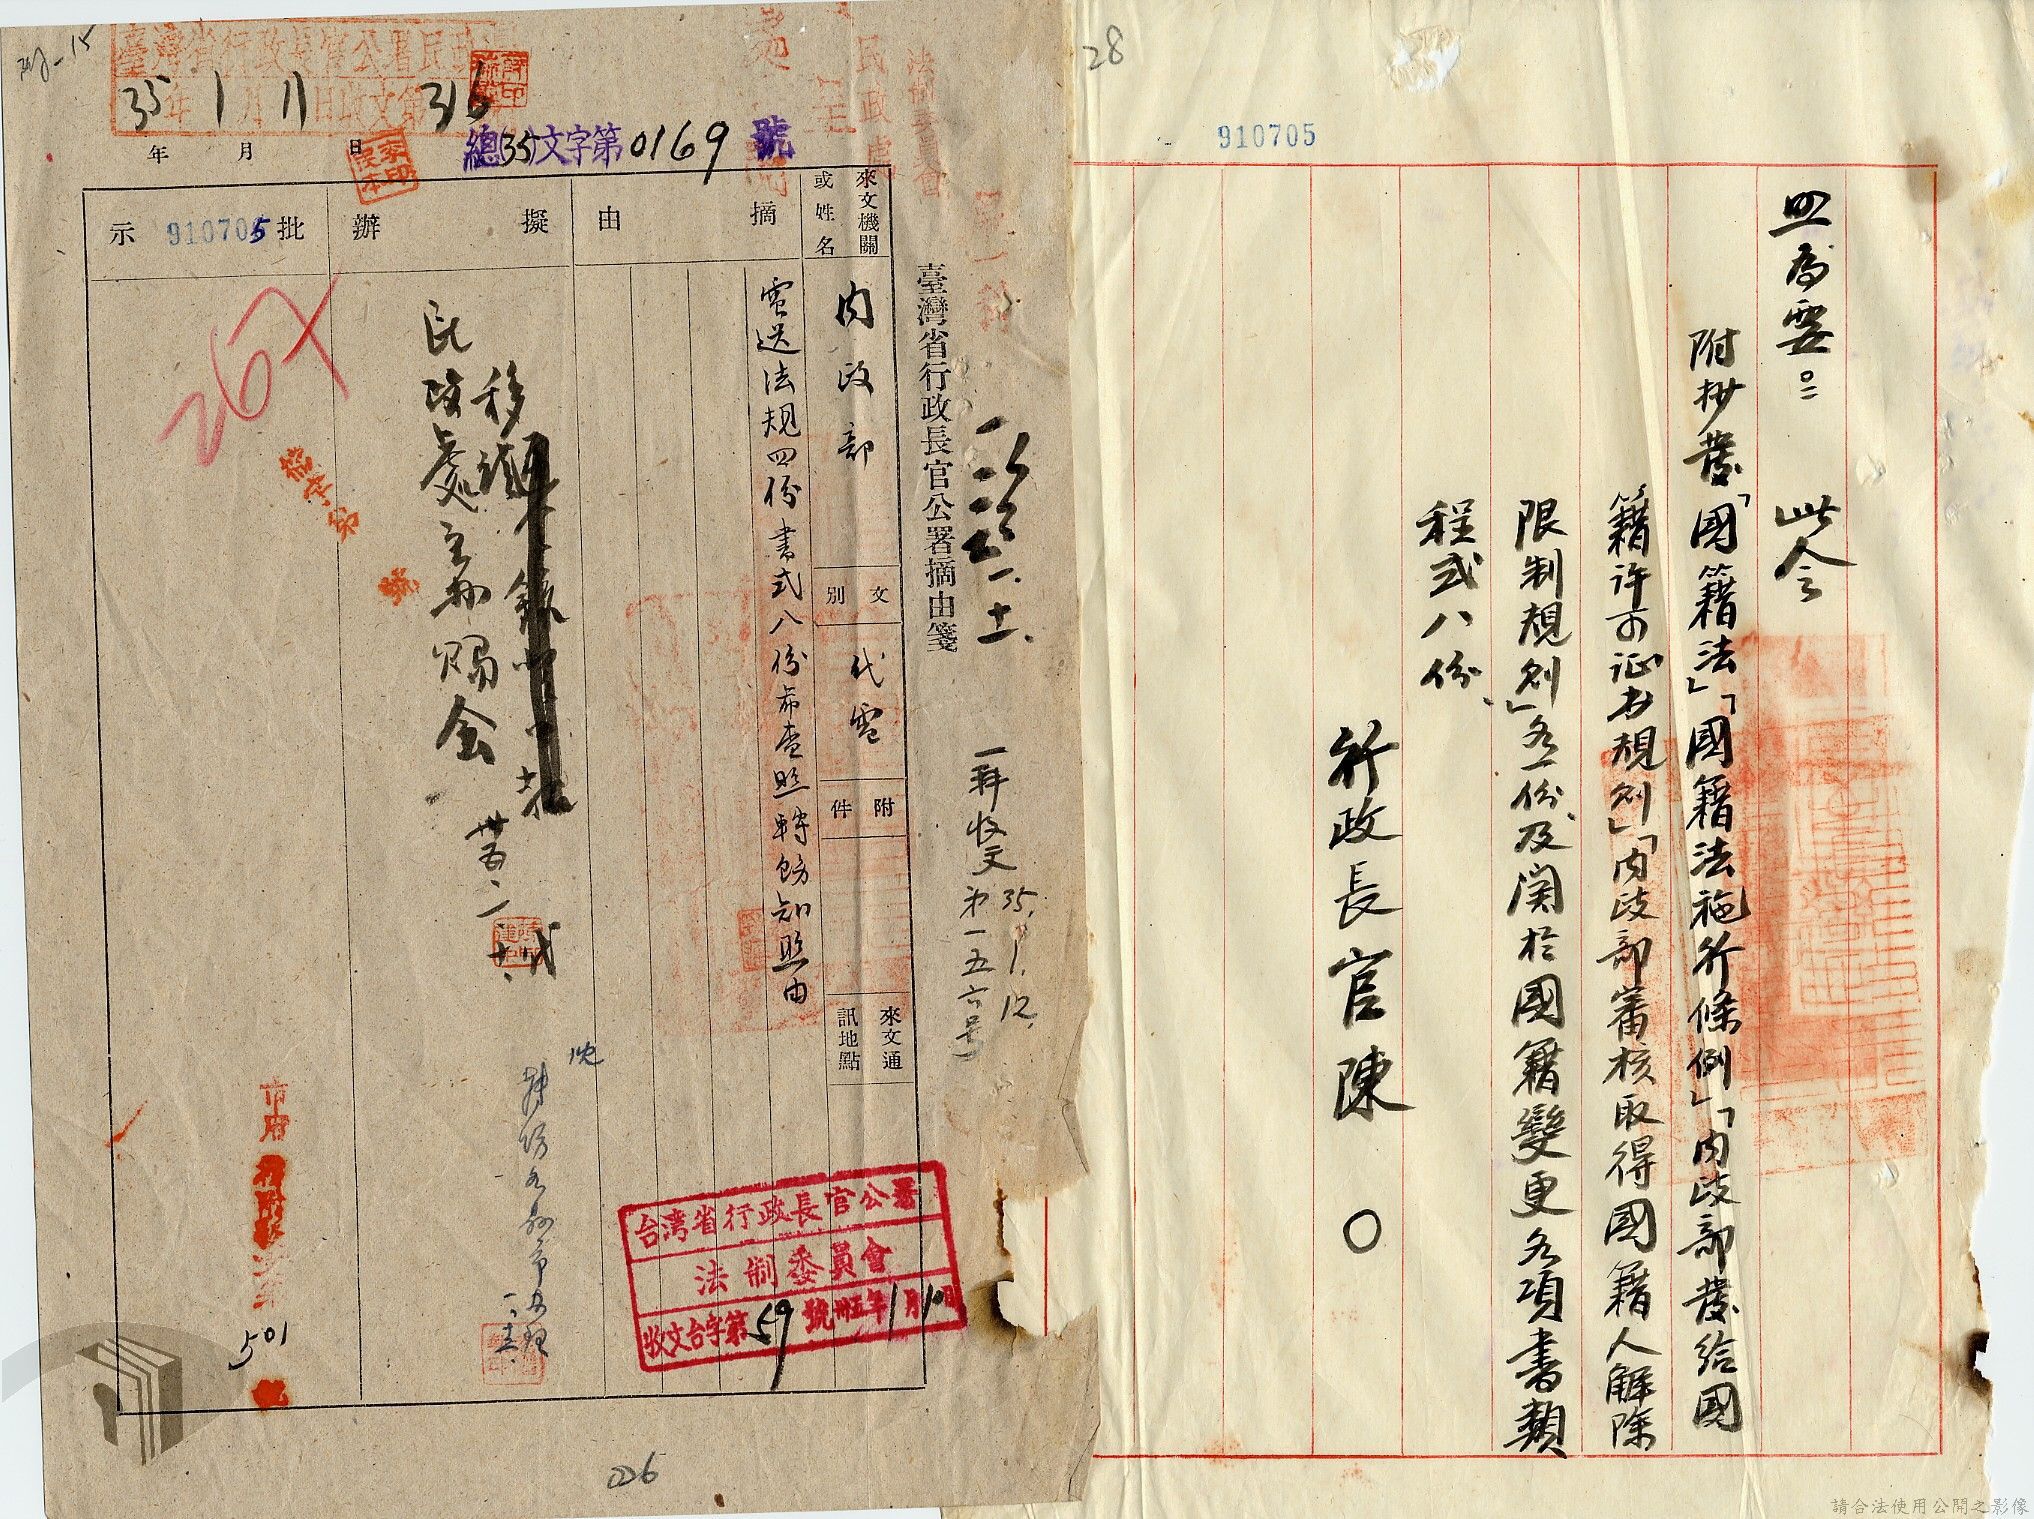 28
910705
照為要
此令
附抄發「國籍法」「國籍法施行條例」「內政部發給國
籍許可证书規則」「內政部審核取得國籍人解除
限制規則」各一份及関於國籍變更各項書類
程式八份、
行政長官陳○
法制委員會
民政處
臺灣省行政長官公署民政處
35年1月11日收文第316
年 月 日
總(35)文字第0169號
一科收文第一五六号
35.1.12.
臺灣省行政長官公署摘由箋
來文機關或姓名
內政部
文別
代電
附件
來文通訊地點
摘由
電送法規四份書式八份希查照轉飭知照由
擬辦
移
民政處主辦
批示
910705
267
市府
501
台湾省行政長官公署
法制委員會
收文台字第59號卅五年1月10日
226
請合法使用公開之影像